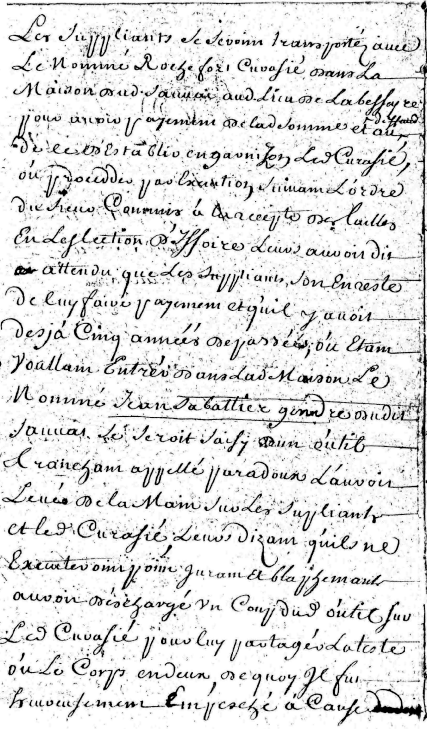 Les suppliants se seroint transportés avec
Le Nommé Rochefort Cuvasié dans La
Maison dud Sauvat aud Lieu de Labessayre
pour avoir payement de lad somme et au
d'Issard
de ce d'Establir en garnizon Led Curasié,
ou proceder par Execution suivant L'ordre
du sieur Commis à la recepte des tailles
En Leslection D'Issoire Leurs auroit dit
attendu que Les suppliants, son En reste
de luy faire payement et qu'il y avoit
desja Cinq années de passées, ou Etant
Voullant Entrér dans Lad Maison Le
Nommé Jean Sabattier gendre dudit
Sauvat Se seroit saisy d'un outil
tranchant appellé paradoux L'auroit
Levée de la Main sur Les suppliants
et led Curasié Leurs dizant quils ne
Executeroint point Jurant Et blasphemant
auroit deschargé un Coup dud outil sur
Led Cuvasié pour luy partagér La teste
ou Le Corps en deux de quoy Il fut
hureusement Empesché à Cause